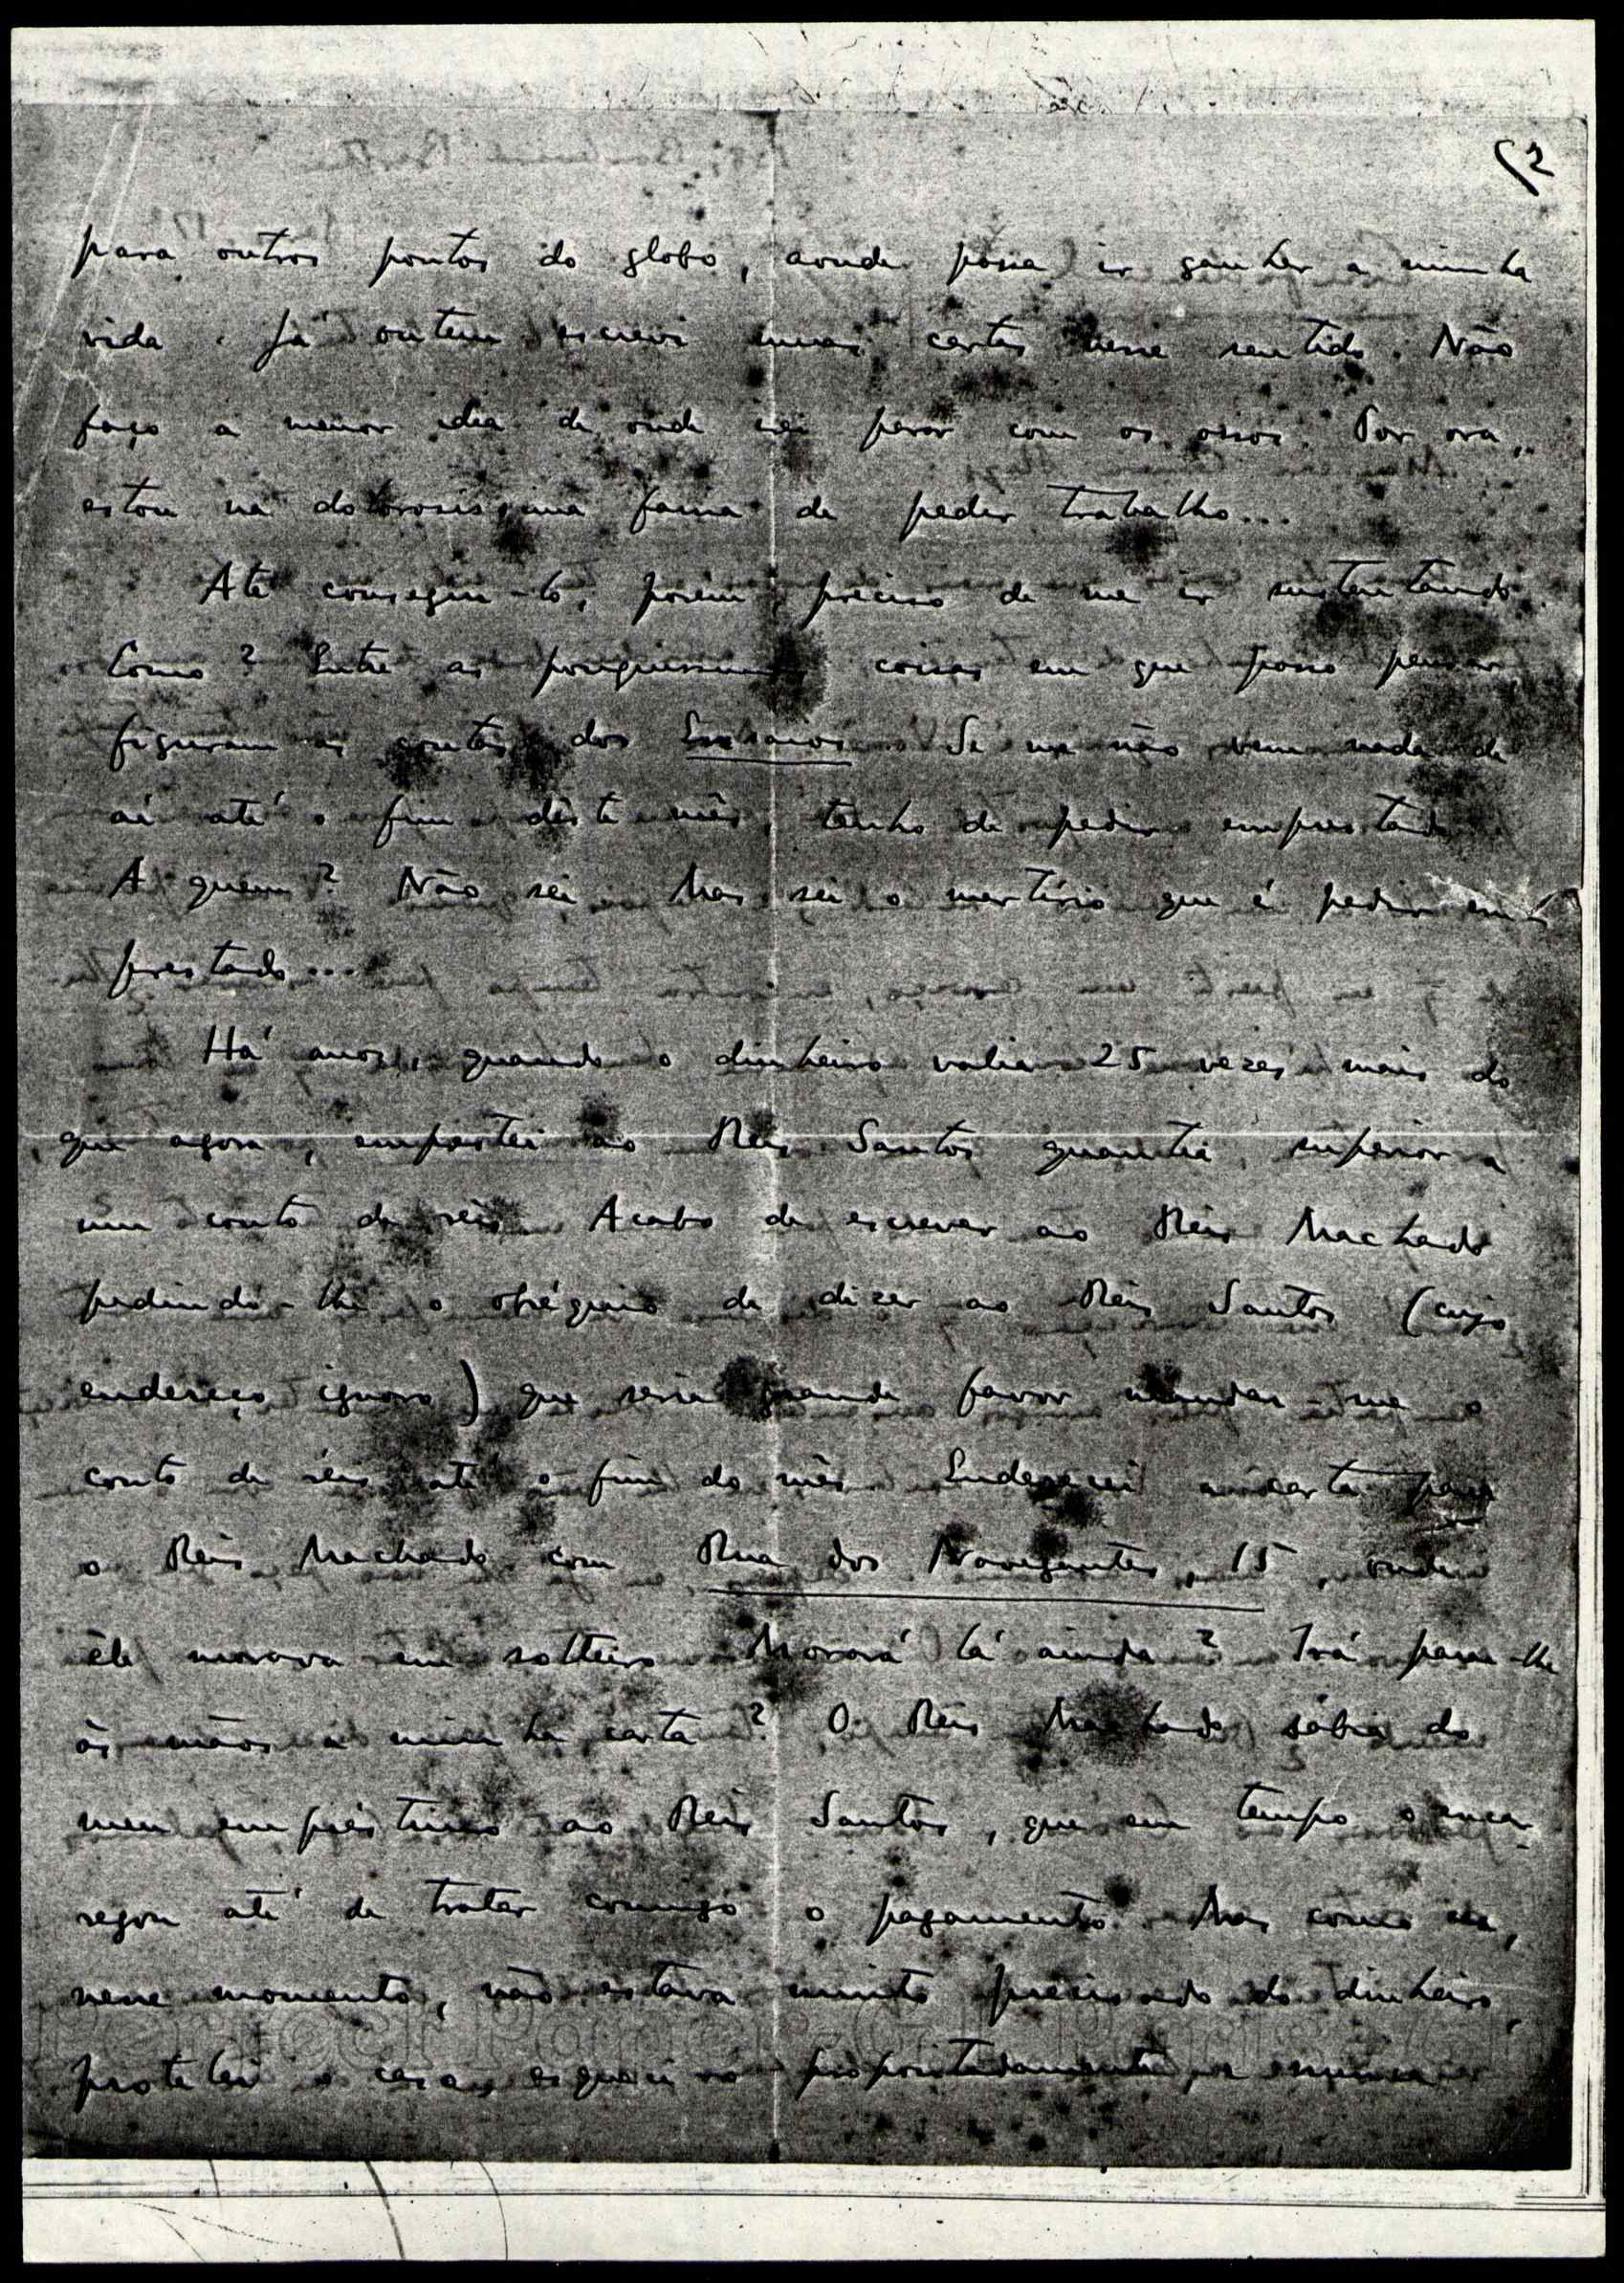 2
para outros pontos do globo, aonde possa ir ganhar a minha
vida. Já ontem escrevi umas cartas nesse sentido. Não
faço a menor idea de onde irei parar com os ossos. Por ora,
estou na dolorosíssima faina de pedir trabalho...
Até consegui-lo, porém, preciso de me ir sustentando.
Como? Entre as pouquíssimas coisas em que posso pensar,
figuram as contas dos Ensaios. Se me não vem nada de
aí até o fim dêste mês, tenho de pedir emprestado.
A quem? Não sei. Mas sei o martírio que é pedir em-
prestado...
Há anos, quando o dinheiro valia 25 vezes mais do
que agora, emprestei ao Reis Santos quantia superior a
um conto de réis. Acabo de escrever ao Reis Machado
pedindo-lhe o obséquio de dizer ao Reis Santos (cujo
endereço ignoro) que seria grande favor mandar-me o
conto de réis até o fim do mês. Enderecei a carta para
o Reis Machado com Rua dos Navegantes, 15, onde
êle morava em solteiro. Morará lá ainda? Irá parar-lhe
às mãos a minha carta? O Reis Machado sabia do
meu empréstimo ao Reis Santos, que em tempo o encar-
regou até de tratar comigo o pagamento. Mas como eu,
nesse momento, não estava muito precisado do dinheiro,
protelei o caso, esqueci-o propositadamente
Perfect Paper